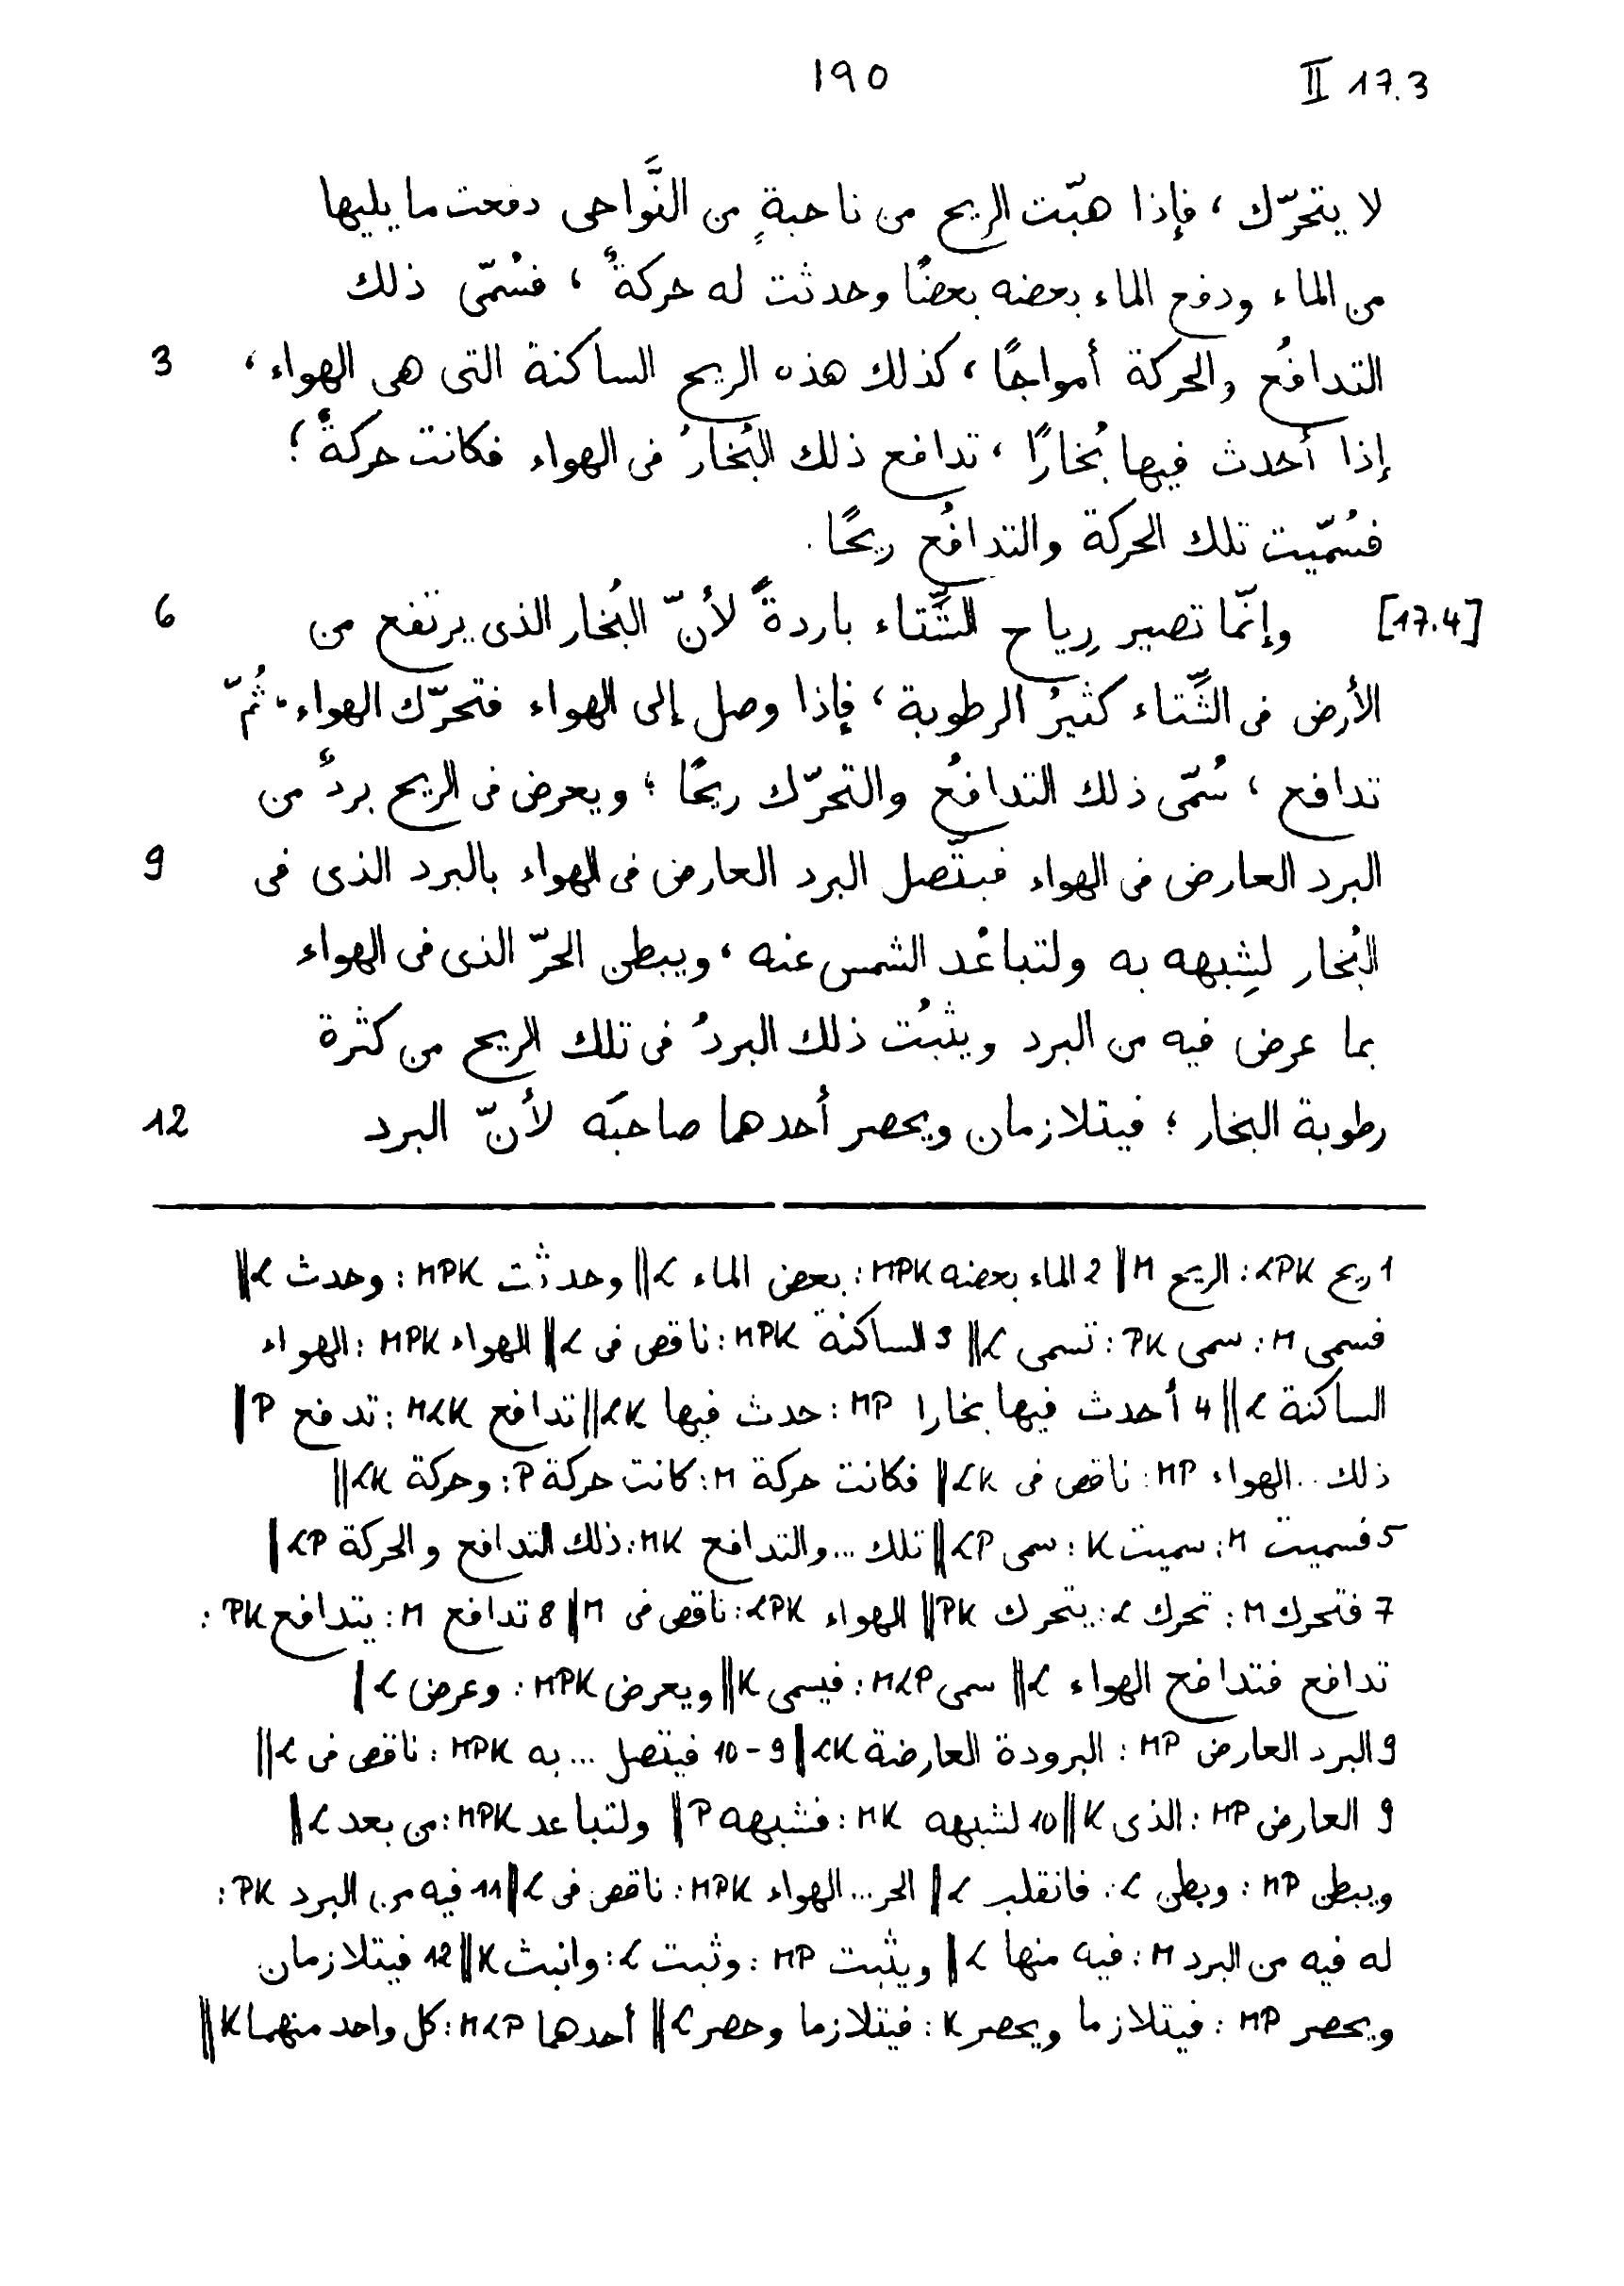 ١٩٠ II 17.3
لا يتحرّك ، فإذا هبّت الريح من ناحيةٍ من النَّواحى دفعت ما يليها
من الماء ودفع الماء بعضه بعضًا وحدثت له حركةٌ ، فسُمّى ذلك
3 التدافُع والحركة أمواجًا ، كذلك هذه الريح الساكنة التى هى الهواء ،
إذا أحدث فيها بُخارًا ، تدافع ذلك البُخارُ فى الهواء فكانت حركةٌ ؛
فسُمّيت تلك الحركة والتدافُع ريحًا .
6 [17.4] وإنّما تصير رِياح الشِّتاء باردةً لأنّ البُخار الذى يرتفع من
الأرض فى الشِّتاء كثيرُ الرطوبة ، فإذا وصل إلى الهواء فتحرّك الهواء ، ثُمّ
تدافع ، سُمّى ذلك التدافُع والتحرّك ريحًا ؛ ويعرض فى الريح بردٌ من
9 البرد العارض فى الهواء فيتّصل البرد العارض فى الهواء بالبرد الذى فى
البُخار لشِبهه به ولتباعُد الشمس عنه ، ويبطن الحرّ الذى فى الهواء
بما عرض فيه من البرد ويثبُت ذلك البردُ فى تلك الريح من كثرة
12 رطوبة البخار ؛ فيتلازمان ويحصر أحدهما صاحبَه لأنّ البرد
1 ريح LPK : الريح M || 2 الماء بعضه MPK : بعض الماء L || وحدثت MPK : وحدث L ||
فسمى M : سمى PK : تسمى L || 3 الساكنة MPK : ناقص فى L || الهواء MPK : الهواء
الساكنة L || 4 أحدث فيها بخارا MP : حدث فيها LK || تدافع MLK : تدفع P ||
ذلك ... الهواء MP : ناقص فى LK || فكانت حركة M : كانت حركة P : وحركة LK ||
5 فسميت M : سميت K : سمى LP || تلك ... والتدافع MK : ذلك التدافع والحركة LP ||
7 فتحرك M : تحرك L : يتحرك PK || الهواء LPK : ناقص فى M || 8 تدافع M : يتدافع PK :
تدافع فتدافع الهواء L || سمى MLP : فيسمى K || ويعرض MPK : وعرض L ||
9 البرد العارض MP : البرودة العارضة LK || 9-10 فيتصل ... به MPK : ناقص فى L ||
9 العارض MP : الذى K || 10 لشبهه MK : فشبهه P || ولتباعد MPK : من بعد L ||
ويبطن MP : وبطن L : فانقلب L || الحر ... الهواء MPK : ناقص فى L || 11 فيه من البرد PK :
له فيه من البرد M : فيه منها L || ويثبت MP : وثبت L : وانبث K || 12 فيتلازمان
ويحصر MP : فيتلازما ويحصر K : فيتلازما وحصر L || أحدهما MLP : كل واحد منهما K ||